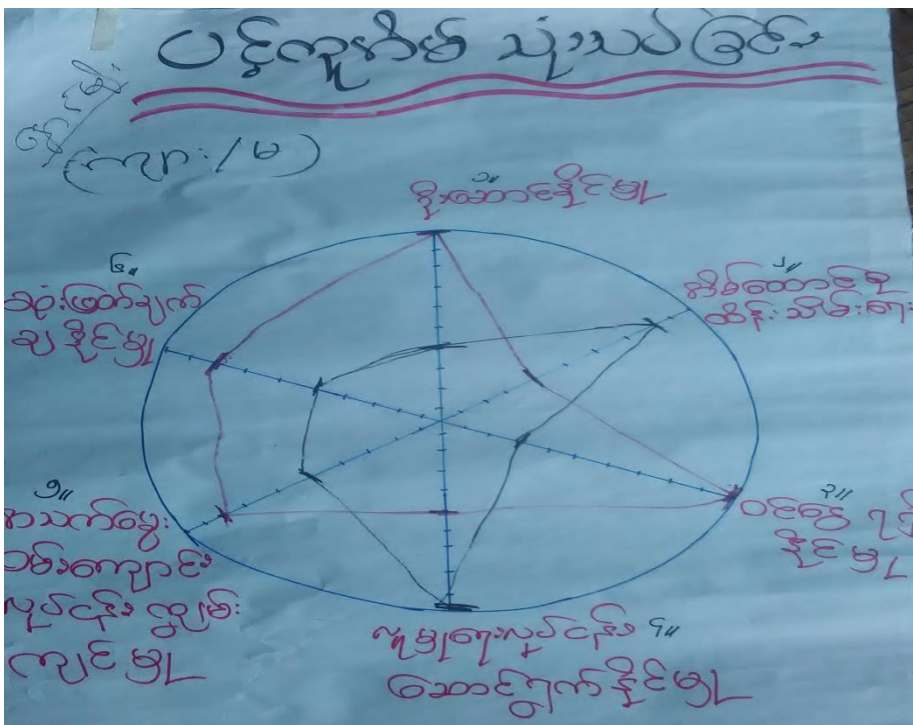 ပင့်ကူအိမ် သုံးသပ်ခြင်း
(ကျား/မ)
၁။
ဦးဆောင်နိုင်မှု
၂။
အိမ်ထောင်စု
ထိန်းသိမ်းရေး
၃။
ဝင်ငွေ ရရှိ
နိုင်မှု
၄။
လူမှုရေးလုပ်ငန်း
ဆောင်ရွက်နိုင်မှု
၅။
အသက်မွေး
ဝမ်းကျောင်း
လုပ်ငန်း ကျွမ်း
ကျင်မှု
၆။
ဆုံးဖြတ်ချက်
ချနိုင်မှု